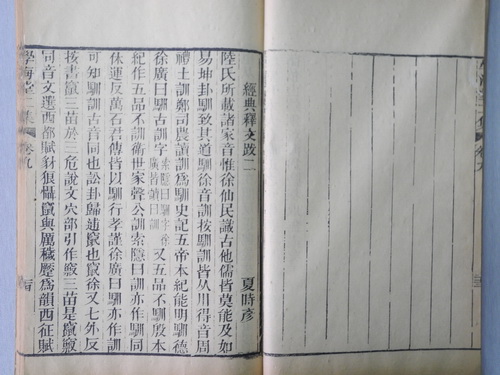 經典釋文跋二
夏時彥
陸氏所載諸家音惟徐仙民識古他儒皆莫能及如
易坤卦馴致其道馴徐音訓按馴訓皆从川得音周
禮土訓鄭司農讀訓爲馴史記五帝本紀能明馴德
徐廣曰馴古訓字索隱曰馴字徐廣皆讀曰訓又五品不馴殷本
紀作五品不訓衛世家聲公訓索隱曰訓亦作馴同
休運反萬石君傳皆以馴行孝謹徐廣曰馴亦作訓
可知馴訓古音同也訟卦歸逋竄也竄徐又七外反
按書竄三苗於三危說文穴部引作𥨥三苗是竄𥨥
同音文選西都賦豺狼懾竄與厲穢蹷爲韻西征賦
學海堂二集
卷九